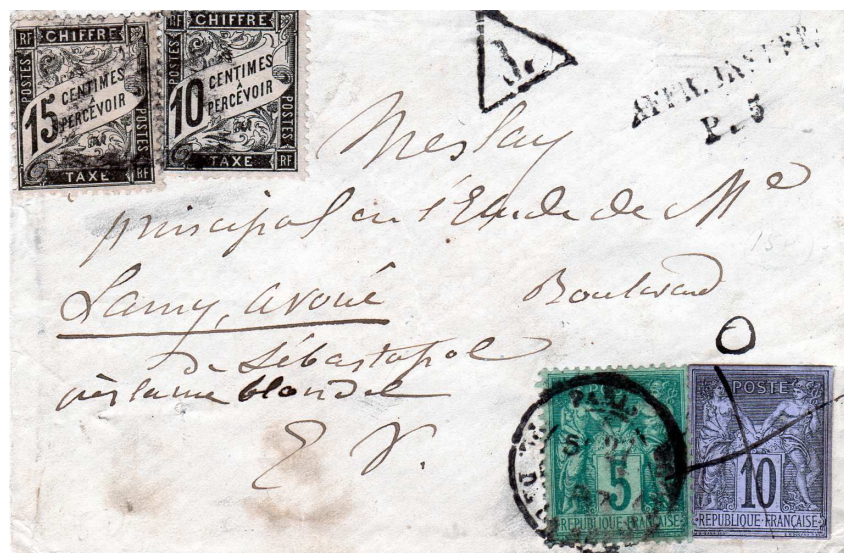 RF CHIFFRE
POSTES
15 CENTIMES
À
PERCEVOIR
POSTES
TAXE RF
RF CHIFFRE
POSTES
10 CENTIMES
À
PERCEVOIR
POSTES
TAXE RF
AFFR. INSUFF.
P-5
Meslay
principal en l'Etude de Me
Lamy, avoué Boulevard
de Sébastopol
près la rue blondel
E V.
PARIS
POSTE
5
REPUBLIQUE FRANÇAISE
POSTE
10
REPUBLIQUE FRANÇAISE